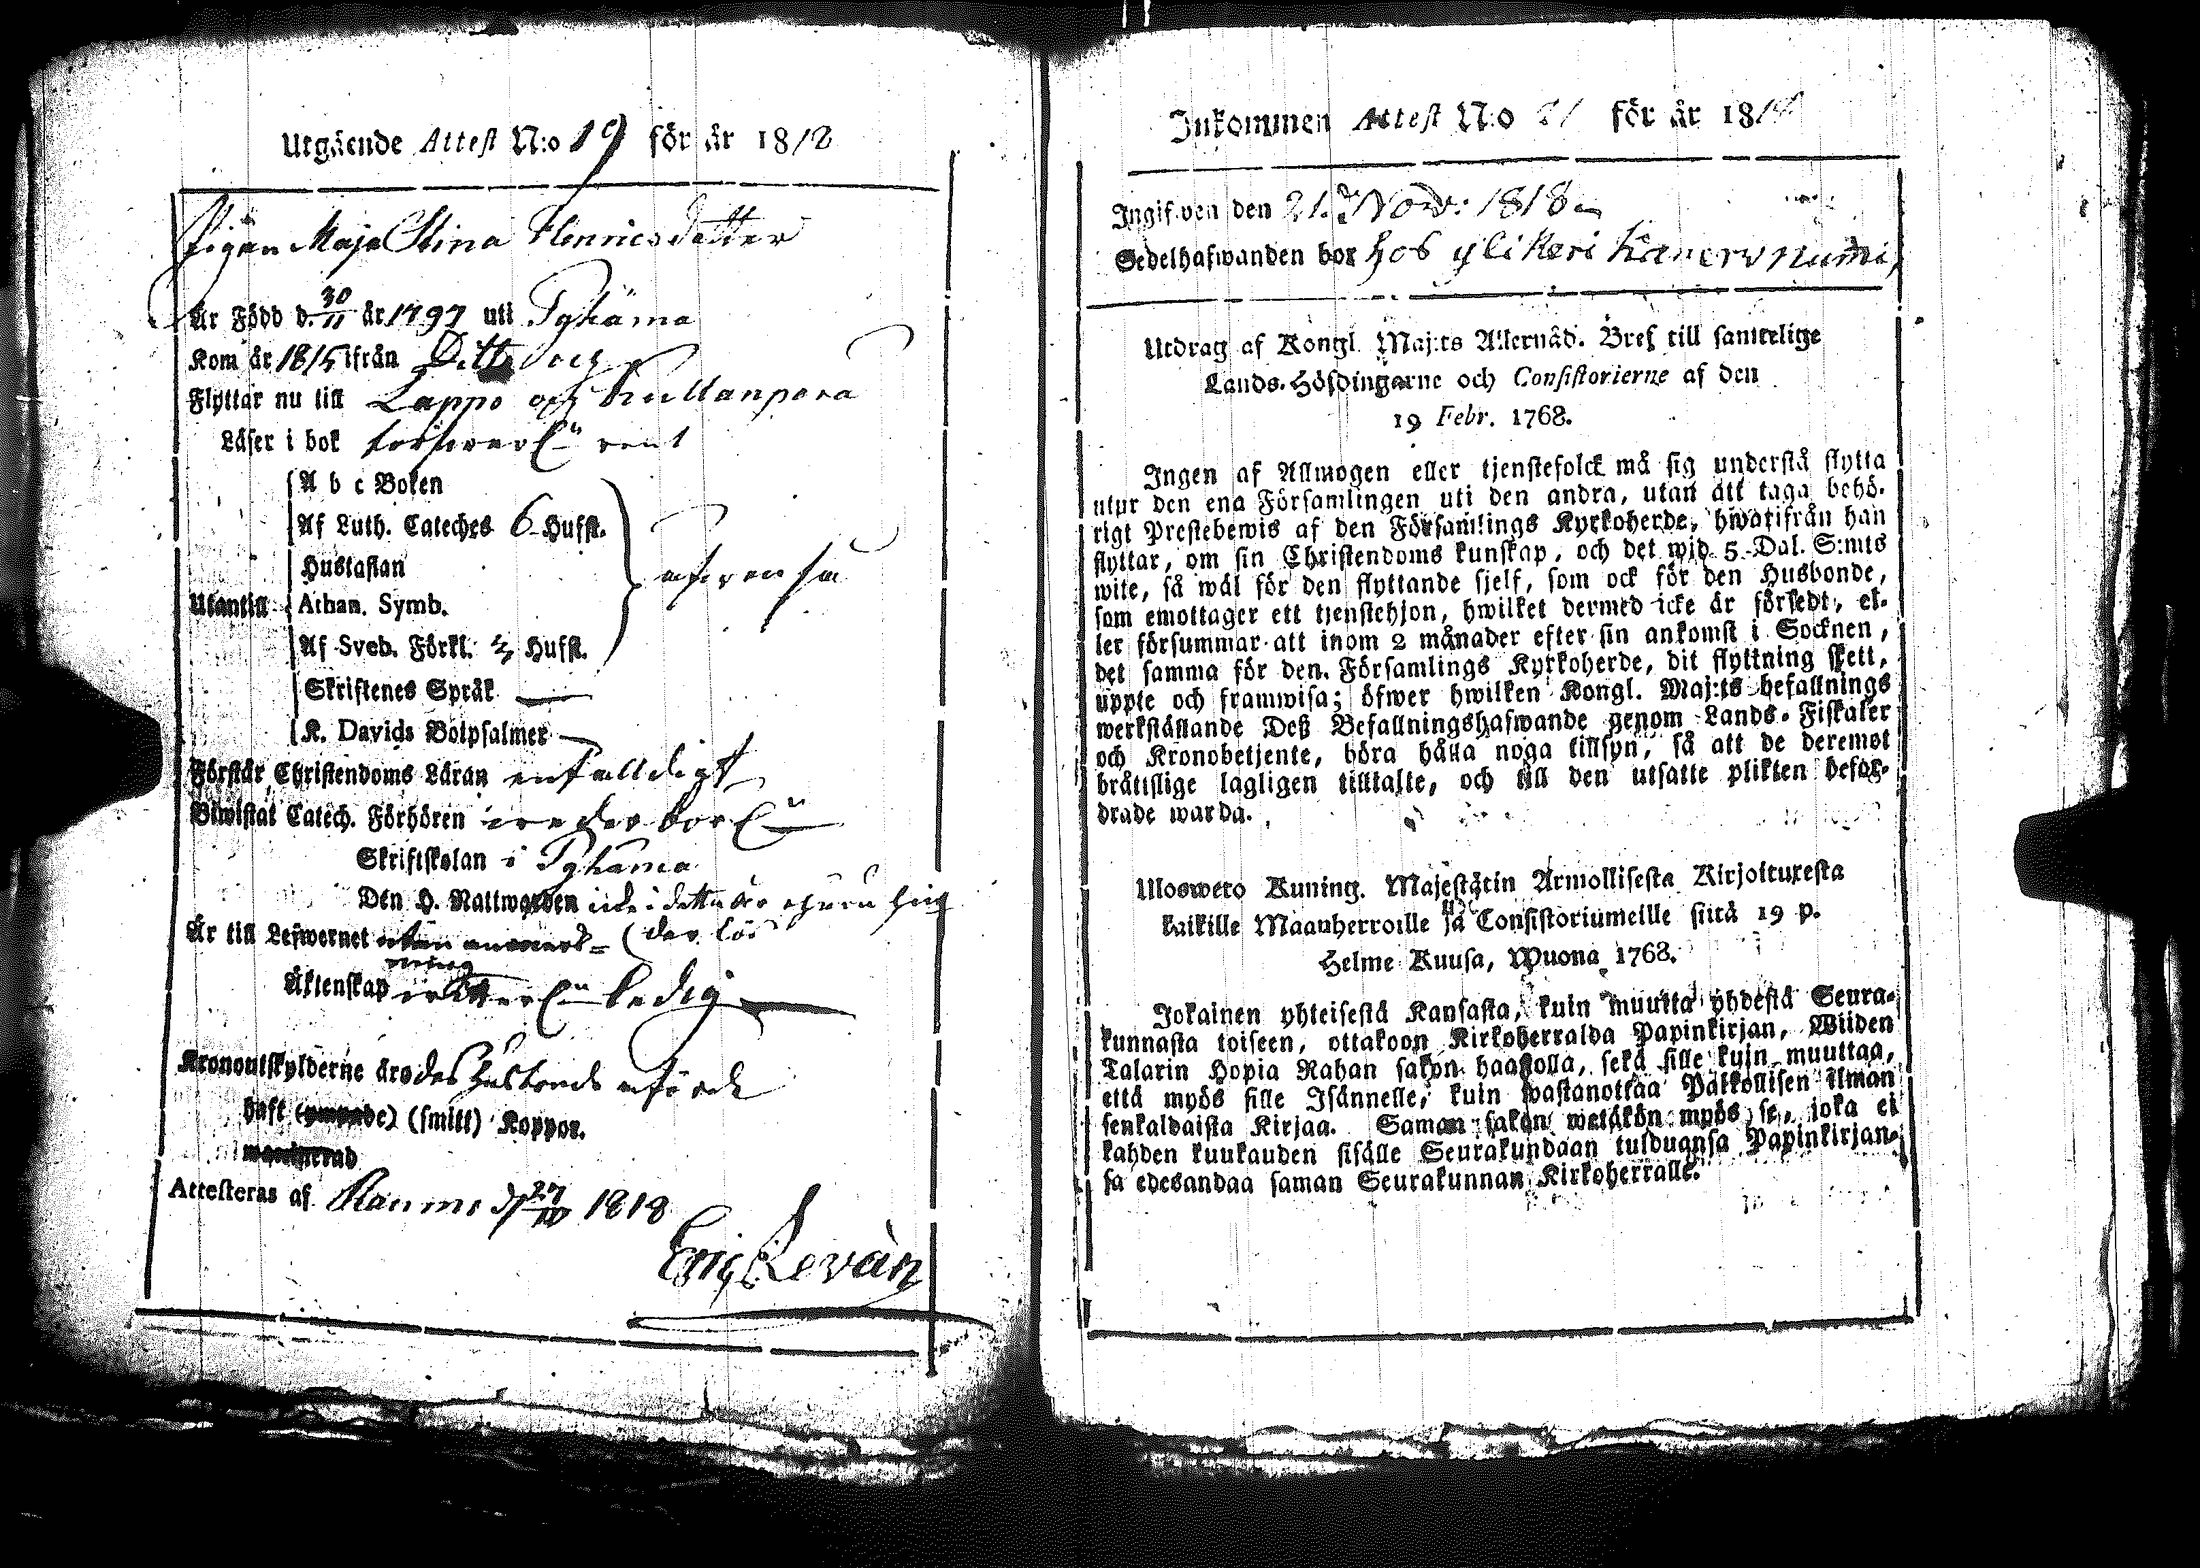 Utgående Attest N:o 19 för år 1818
Pigan Maja Stina Henricsdotter
Är Född d. 30/11 år 1797 uti Pyhäma
Kom år 1815 ifrån Ditto och
Flyttar nu till Lappo och Kullanpera
Läser i bok försvarl:n rent
A b c Boken
Af Luth. Cateches 6 Hufst.
Hustaflan
Utantill Athan. Symb.
Af Sveb. Förkl. Hufst.
Skriftenes Språk —
K. Davids Botpsalmer —
Förstår Christendoms Läran enfalldigt
Biwistat Catech. Förhören
Skriftskolan i Pyhäma
Den H. Nattwarden
Är till Lefwernet
Äktenskap ledig
Kronoutskylderne äro des Husbonde
haft (ympade) (smitt) Koppor.
Attesteras af Raumo d. 27/10 1818
Eric Levàn
Inkommen Attest N:o 21 för år 1818
Ingifven den 21. Nov: 1818
Sedelhafwanden bor hos yli Keri Kanerw numi,
Utdrag af Kongl. Maj:ts Allernåd. Bref till samtelige
Lands-Höfdingarne och Consistorierne af den
19 Febr. 1768.
Ingen af Allmogen eller tjenstefolck må sig understå flytta
utur den ena Församlingen uti den andra, utan att taga behö-
rigt Prestebewis af den Församlings Kyrkoherde, hwarifrån han
flyttar, om sin Christendoms kunskap, och det wid 5 Dal. S:mts
wite, så wäl för den flyttande sjelf, som ock för den Husbonde,
som emottager ett tjenstehjon, hwilket dermed icke är försedt, el-
ler försummar att inom 2 månader efter sin ankomst i Socknen,
det samma för den Församlings Kyrkoherde, dit flyttning skett,
uppte och framwisa; öfwer hwilken Kongl. Maj:ts befallnings
werkställande Deß Befallningshafwande genom Lands-Fiskaler
och Kronobetjente, böra hålla noga tillsyn, så att de deremot
bråttslige lagligen tilltalte, och till den utsatte plikten befor-
drade warda.
Ulosweto Kuning. Majestätin Armollisesta Kirjoituxesta
kaikille Maanherroille ja Consistoriumeille siitä 19 p.
Helme Kuusa, Wuona 1768.
Jokainen yhteisestä Kansasta, kuin muutta yhdestä Seura-
kunnasta toiseen, ottakoon Kirkoherralda Papinkirjan, Wiiden
Talarin Hopia Rahan sakon haastolla, sekä sille kuin muuttaa,
että myös sille Isännelle, kuin wastanottaa Palkollisen ilman
senkaldaista Kirjaa. Saman sakon wetäkön myös se, joka ei
kahden kuukauden sisälle Seurakundaan tulduansa Papinkirjan-
sa edesandaa saman Seurakunnan Kirkoherralle.